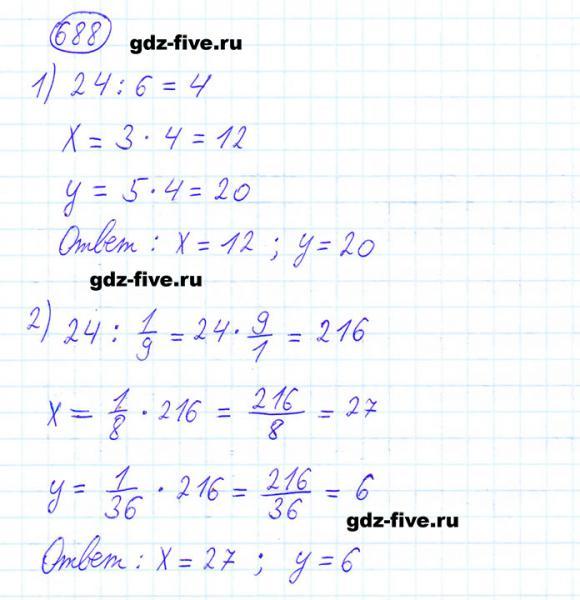 688 gdz-five.ru
1) 24 : 6 = 4
x = 3 · 4 = 12
y = 5 · 4 = 20
Ответ : x = 12 ; y = 20
gdz-five.ru
2) 24 : 1/9 = 24 · 9/1 = 216
x = 1/8 · 216 = 216/8 = 27
y = 1/36 · 216 = 216/36 = 6
gdz-five.ru
Ответ : x = 27 ; y = 6